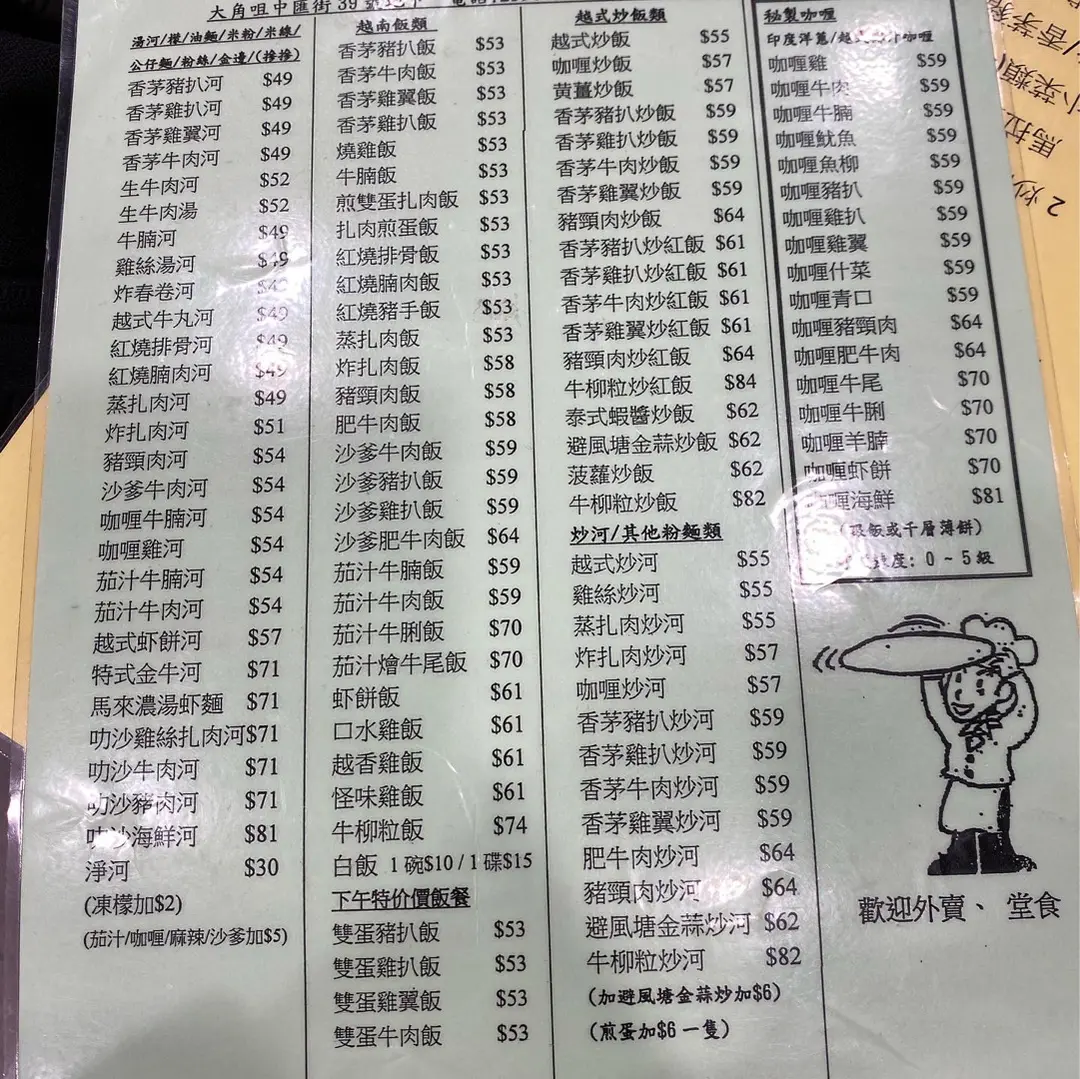 大角咀中匯街39號地下
湯河/檬/油麵/米粉/米線/
公仔麵/粉絲/金邊/(撈撈)
香茅豬扒河 $49
香茅雞扒河 $49
香茅雞翼河 $49
香茅牛肉河 $49
生牛肉河 $52
生牛肉湯 $52
牛腩河 $49
雞絲湯河 $49
炸春卷河
越式牛丸河 $49
紅燒排骨河 $49
紅燒腩肉河 $49
蒸扎肉河 $49
炸扎肉河 $51
豬頸肉河 $54
沙爹牛肉河 $54
咖喱牛腩河 $54
咖喱雞河 $54
茄汁牛腩河 $54
茄汁牛肉河 $54
越式虾餅河 $57
特式金牛河 $71
馬來濃湯虾麵 $71
叻沙雞絲扎肉河$71
叻沙牛肉河 $71
叻沙豬肉河 $71
叻沙海鮮河 $81
淨河 $30
(凍檬加$2)
(茄汁/咖喱/麻辣/沙爹加$5)
越南飯類
香茅豬扒飯 $53
香茅牛肉飯 $53
香茅雞翼飯 $53
香茅雞扒飯 $53
燒雞飯 $53
牛腩飯 $53
煎雙蛋扎肉飯 $53
扎肉煎蛋飯 $53
紅燒排骨飯 $53
紅燒腩肉飯 $53
紅燒豬手飯 $53
蒸扎肉飯 $53
炸扎肉飯 $58
豬頸肉飯 $58
肥牛肉飯 $58
沙爹牛肉飯 $59
沙爹豬扒飯 $59
沙爹雞扒飯 $59
沙爹肥牛肉飯 $64
茄汁牛腩飯 $59
茄汁牛肉飯 $59
茄汁牛脷飯 $70
茄汁燴牛尾飯 $70
虾餅飯 $61
口水雞飯 $61
越香雞飯 $61
怪味雞飯 $61
牛柳粒飯 $74
白飯 1碗$10/1碟$15
下午特价價飯餐
雙蛋豬扒飯 $53
雙蛋雞扒飯 $53
雙蛋雞翼飯 $53
雙蛋牛肉飯 $53
越式炒飯類
越式炒飯 $55
咖喱炒飯 $57
黃薑炒飯 $57
香茅豬扒炒飯 $59
香茅雞扒炒飯 $59
香茅牛肉炒飯 $59
香茅雞翼炒飯 $59
豬頸肉炒飯 $64
香茅豬扒炒紅飯 $61
香茅雞扒炒紅飯 $61
香茅牛肉炒紅飯 $61
香茅雞翼炒紅飯 $61
豬頸肉炒紅飯 $64
牛柳粒炒紅飯 $84
泰式蝦醬炒飯 $62
避風塘金蒜炒飯 $62
菠蘿炒飯 $62
牛柳粒炒飯 $82
炒河/其他粉麵類
越式炒河 $55
雞絲炒河 $55
蒸扎肉炒河 $55
炸扎肉炒河 $57
咖喱炒河 $57
香茅豬扒炒河 $59
香茅雞扒炒河 $59
香茅牛肉炒河 $59
香茅雞翼炒河 $59
肥牛肉炒河 $64
豬頸肉炒河 $64
避風塘金蒜炒河 $62
牛柳粒炒河 $82
(加避風塘金蒜炒加$6)
(煎蛋加$6一隻)
秘製咖喱
印度洋蔥/越式
咖喱雞 $59
咖喱牛肉 $59
咖喱牛腩 $59
咖喱魷魚 $59
咖喱魚柳 $59
咖喱豬扒 $59
咖喱雞扒 $59
咖喱雞翼 $59
咖喱什菜 $59
咖喱青口 $59
咖喱豬頸肉 $64
咖喱肥牛肉 $64
咖喱牛尾 $70
咖喱牛脷 $70
咖喱羊腩 $70
咖喱虾餅 $70
咖喱海鮮 $81
飯或千層薄餅)
辣度: 0~5級
歡迎外賣、堂食